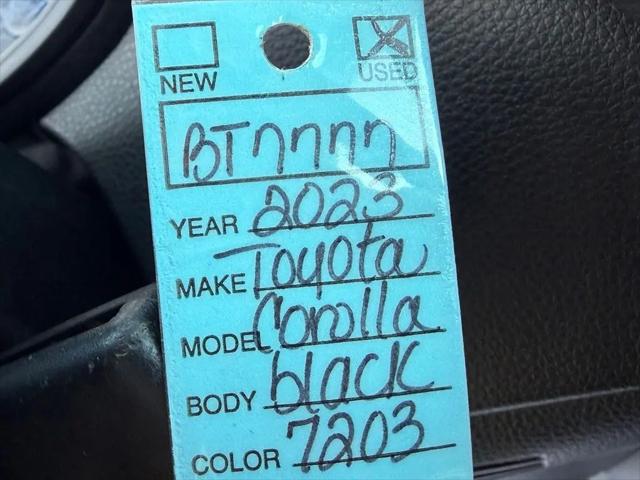 NEW USED
BT7777
YEAR 2023
MAKE Toyota
MODEL Corolla
BODY black
COLOR 7203